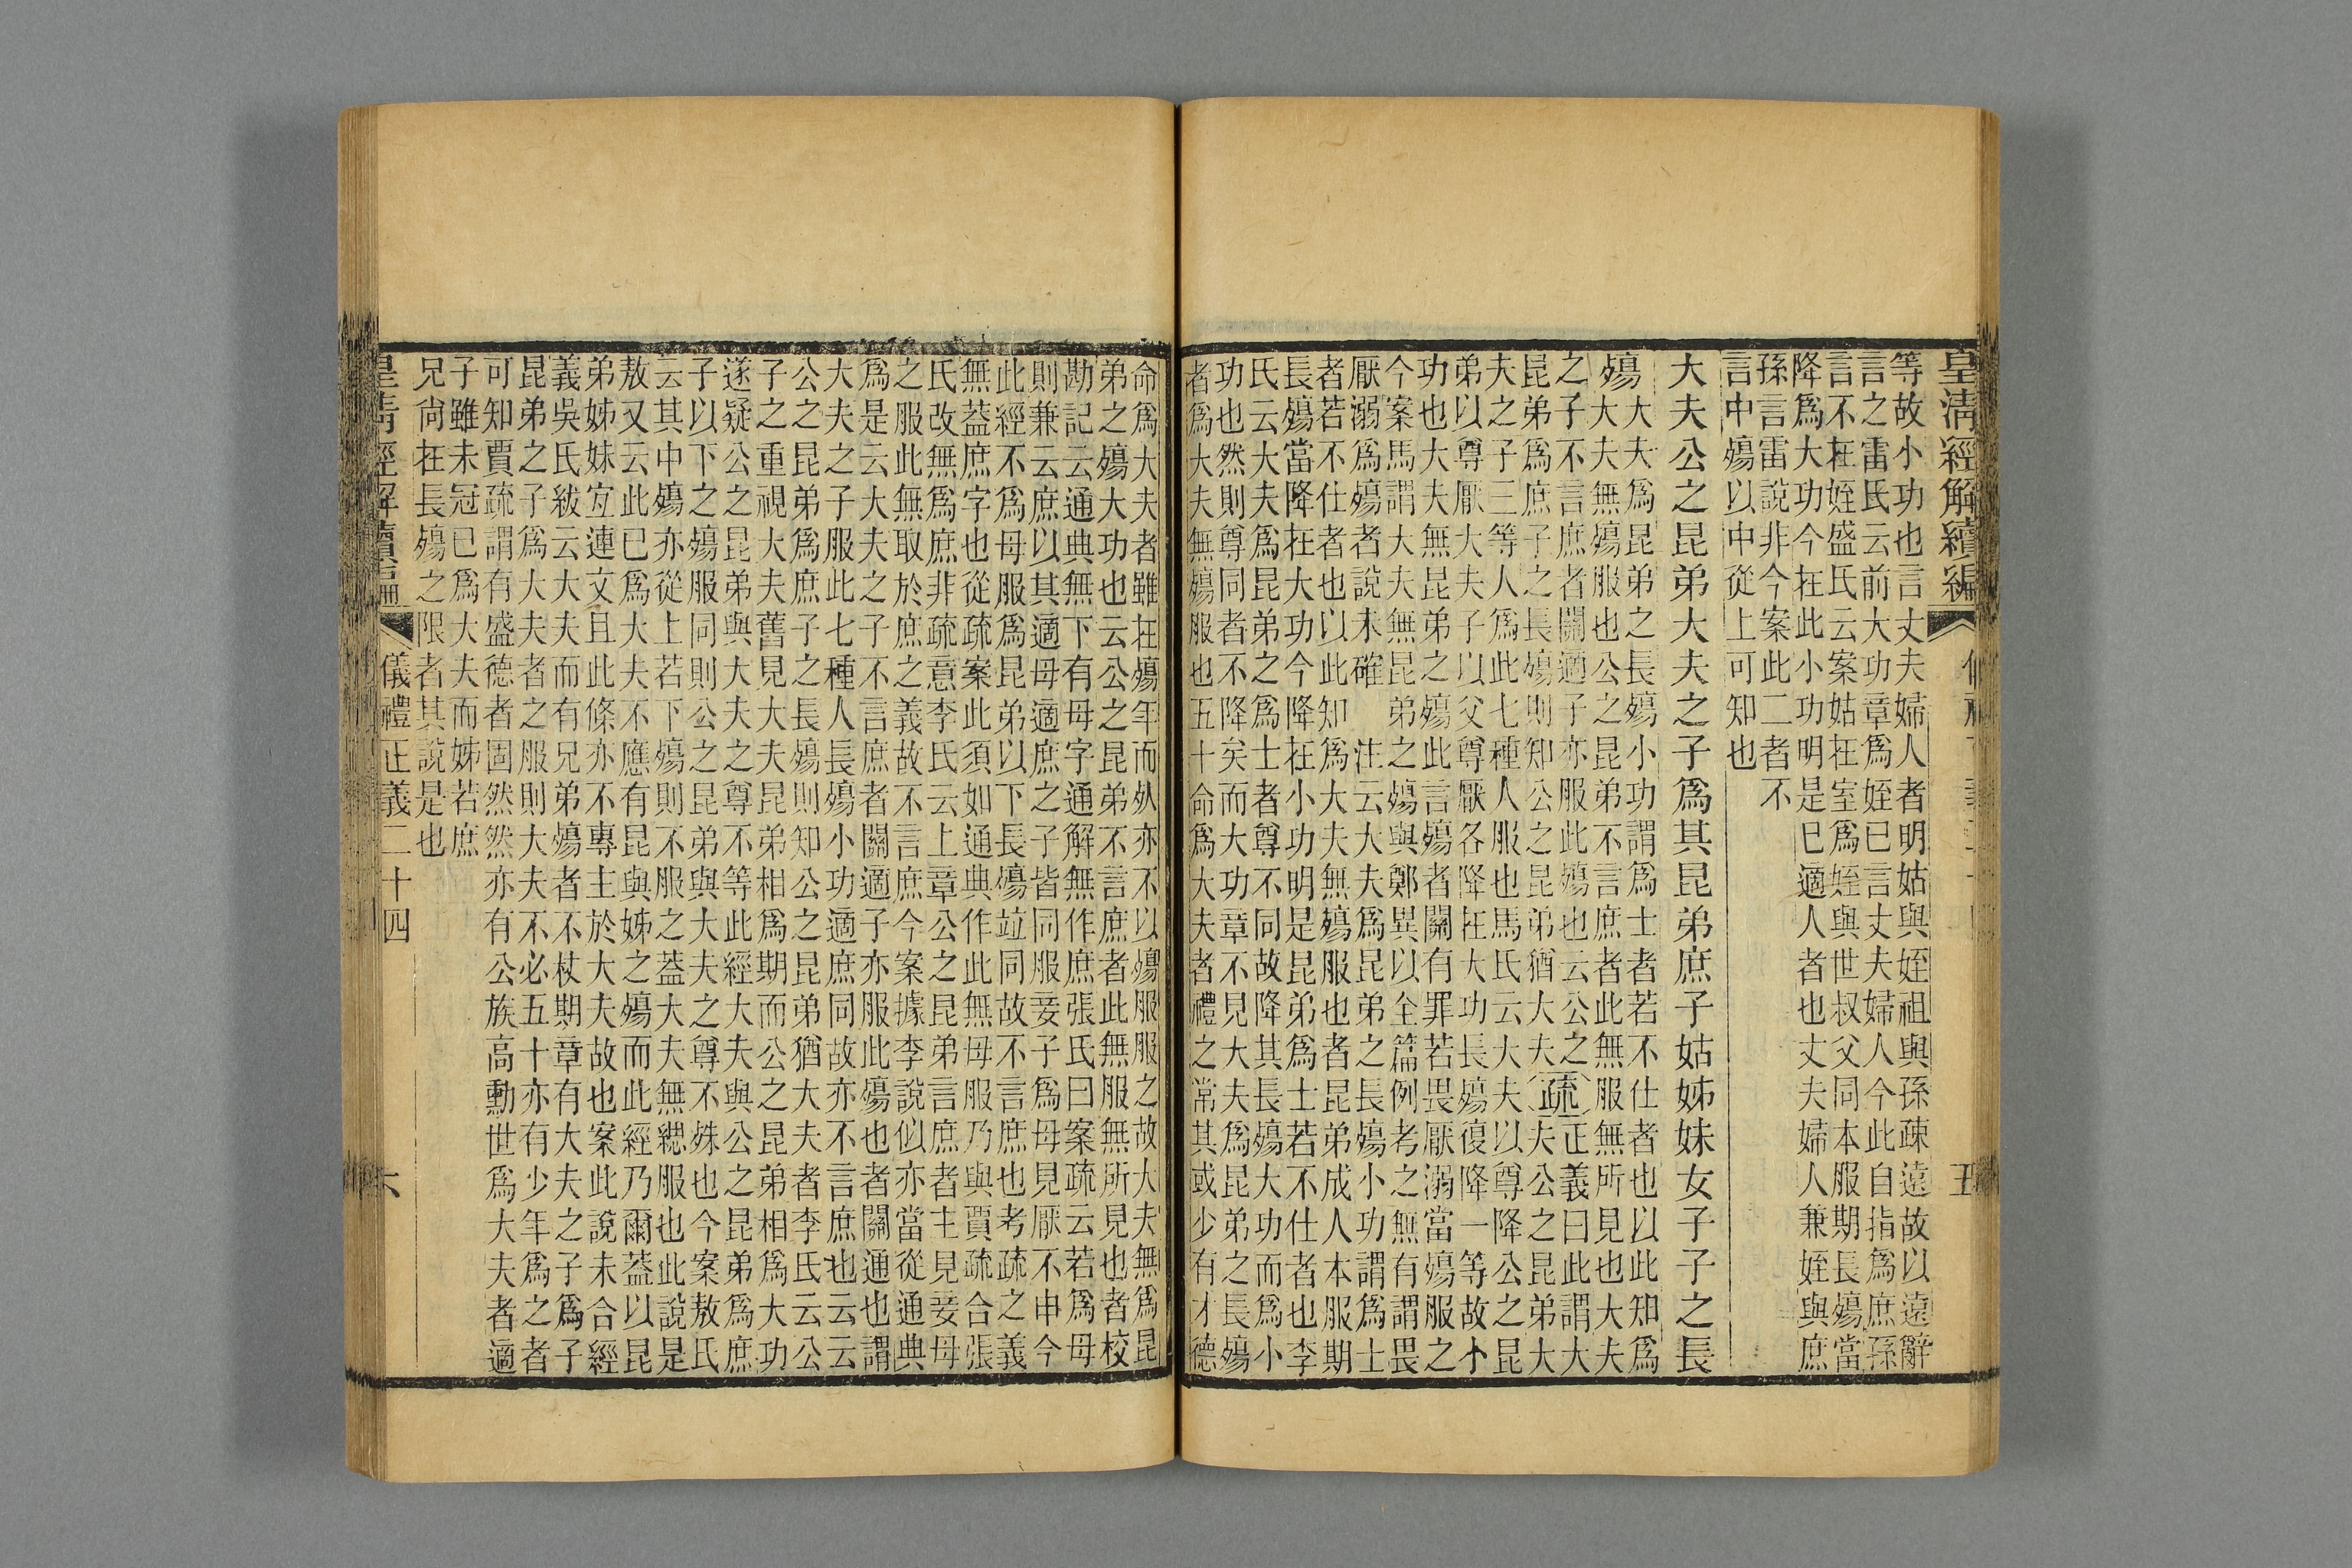 皇清經解續編
五
等故小功也言丈夫婦人者明姑與姪祖與孫疎遠故以遠辭
言之雷氏云前大功章爲姪已言丈夫婦人今此自指爲庶孫
言不在姪盛氏云案姑在室爲姪與世叔父同本服期長殤當
降爲大功今在此小功明是巳適人者也丈夫婦人兼姪與庶
孫言雷說非今案此二者不
言中殤以中從上可知也
大夫公之昆弟大夫之子爲其昆弟庶子姑姊妹女子子之長
殤
大夫爲昆弟之長殤小功謂爲士者若不仕者也以此知爲
大夫無殤服也公之昆弟不言庶者此無服無所見也大夫
之子不言庶者關適子亦服此殤也云公之
昆弟爲庶子之長殤則知公之昆弟猶大夫
疏
正義曰此謂大
夫公之昆弟大
夫之子三等人爲此七種人服也馬氏云大夫以尊降公之昆
弟以尊厭大夫子以父尊厭各降在大功長殤復降一等故小
功也大夫無昆弟之殤此言殤者關有罪若畏厭溺當殤服之
今案馬謂大夫無昆弟之殤與鄭異以全篇例考之無有謂畏
厭溺爲殤者說未確 注云大夫爲昆弟之長殤小功謂爲士
者若不仕者也以此知爲大夫無殤服也者昆弟成人本服期
長殤當降在大功今降在小功明是昆弟爲士若不仕者也李
氏云大夫爲昆弟之爲士者尊不同故降其長殤大功而爲小
功也然則尊同者不降矣而大功章不見大夫爲昆弟之長殤
者爲大夫無殤服也五十命爲大夫者禮之常其或少有才德
命爲大夫者雖在殤年而𣦸亦不以殤服服之故大夫無爲昆
弟之殤大功也云公之昆弟不言庶者此無服無所見也者校
勘記云通典無下有母字通解無作庶張氏曰案疏云若爲母
則兼云庶以其適母適庶之子皆同服妾子爲母見厭不申今
此經不爲母服爲昆弟以下長殤竝同故不言庶也考疏之義
無蓋庶字也從疏案此須如通典作此無母服乃與賈疏合張
氏改無爲庶非疏意李氏云上章公之昆弟言庶者主見妾母
之服此無取於庶之義故不言庶今案據李說似亦當從通典
爲是云大夫之子不言庶者關適子亦服此殤也者關通也謂
大夫之子服此七種人長殤小功適庶同故亦不言庶也云云
公之昆弟爲庶子之長殤則知公之昆弟猶大夫者李氏云公
子之重視大夫舊見大夫昆弟相爲期而公之昆弟相爲大功
遂疑公之昆弟與大夫之尊不等此經大夫與公之昆弟爲庶
子以下之殤服同則公之昆弟與大夫之尊不殊也今案敖氏
云其中殤亦從上若下殤則不服之蓋大夫無緦服也此說是
敖又云此已爲大夫不應有昆與姊之殤而此經乃爾蓋以昆
弟姊妹宜連文且此條亦不專主於大夫故也案此說未合經
義吳氏紱云大夫而有兄弟殤者不杖期章有大夫之子爲子
昆弟之子爲大夫者之服則大夫不必五十亦有少年爲之者
可知賈疏謂有盛德者固然然亦有公族高勳世爲大夫者適
子雖未冠已爲大夫而姊若庶
兄尚在長殤之限者其說是也
皇清經解續編 儀禮正義二十四 六